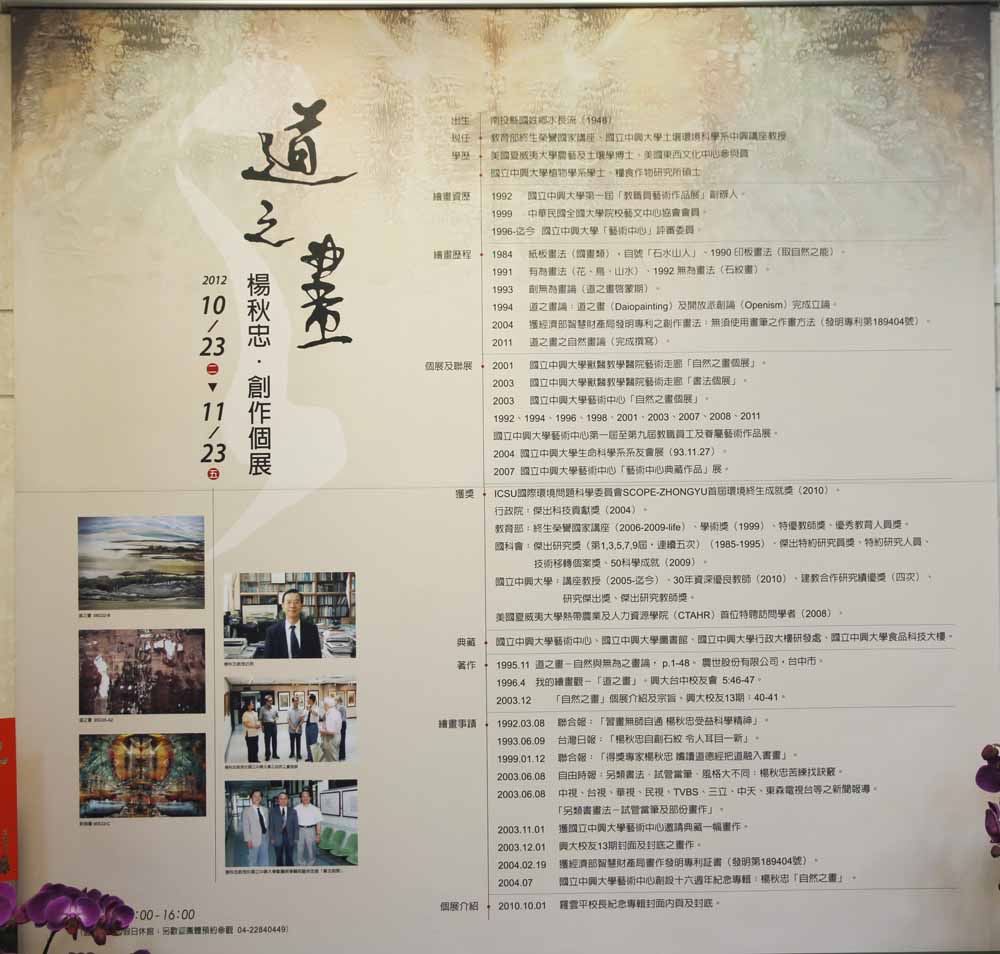 道之畫
楊秋忠．創作個展
2012
10/23 二
▼
11/23 五
出生 南投縣國姓鄉水長流（1948）
現任 教育部終生榮譽國家講座、國立中興大學土壤環境科學系中興講座教授
學歷 美國夏威夷大學農藝及土壤學博士、美國東西文化中心參與員
國立中興大學植物學系學士、糧食作物研究所碩士
繪畫資歷 1992 國立中興大學第一屆「教職員藝術作品展」創辦人。
1999 中華民國全國大學院校藝文中心協會會員。
1996-迄今 國立中興大學「藝術中心」評審委員。
繪畫歷程 1984 紙板畫法（國畫類），自號「石水山人」、1990 印板畫法（取自然之能）。
1991 有為畫法（花、鳥、山水）、1992 無為畫法（石紋畫）。
1993 創無為畫論（道之畫啓蒙期）。
1994 道之畫論：道之畫（Daiopainting）及開放派創論（Openism）完成立論。
2004 獲經濟部智慧財產局發明專利之創作畫法：無須使用畫筆之作畫方法（發明專利第189404號）。
2011 道之畫之自然畫論（完成撰寫）。
個展及聯展 2001 國立中興大學獸醫教學醫院藝術走廊「自然之畫個展」。
2003 國立中興大學獸醫教學醫院藝術走廊「書法個展」。
2003 國立中興大學藝術中心「自然之畫個展」。
1992、1994、1996、1998、2001、2003、2007、2008、2011
國立中興大學藝術中心第一屆至第九屆教職員工及眷屬藝術作品展。
2004 國立中興大學生命科學系系友會展（93.11.27）。
2007 國立中興大學藝術中心「藝術中心典藏作品」展。
獲獎 ICSU國際環境問題科學委員會SCOPE-ZHONGYU首屆環境終生成就獎（2010）。
行政院：傑出科技貢獻獎（2004）。
教育部：終生榮譽國家講座（2006-2009-life）、學術獎（1999）、特優教師獎、優秀教育人員獎。
國科會：傑出研究獎（第1,3,5,7,9屆，連續五次）（1985-1995）、傑出特約研究員獎、特約研究人員、
技術移轉個案獎、50科學成就（2009）。
國立中興大學：講座教授（2005-迄今）、30年資深優良教師（2010）、建教合作研究績優獎（四次）、
研究傑出獎、傑出研究教師獎。
美國夏威夷大學熱帶農業及人力資源學院（CTAHR）首位特聘訪問學者（2008）。
典藏 國立中興大學藝術中心、國立中興大學圖書館、國立中興大學行政大樓研發處、國立中興大學食品科技大樓。
著作 1995.11 道之畫－自然與無為之畫論， p.1-48、 農世股份有限公司，台中市。
1996.4 我的繪畫觀－「道之畫」。興大台中校友會 5:46-47。
2003.12 「自然之畫」個展介紹及宗旨。興大校友13期：40-41。
繪畫事蹟 1992.03.08 聯合報：「習畫無師自通 楊秋忠受益科學精神」。
1993.06.09 台灣日報：「楊秋忠自創石紋 令人耳目一新」。
1999.01.12 聯合報：「得獎專家楊秋忠 嗜讀道德經把道融入書畫」。
2003.06.08 自由時報：另類書法，試管當筆、風格大不同：楊秋忠苦練找訣竅。
2003.06.08 中視、台視、華視、民視、TVBS、三立、中天、東森電視台等之新聞報導。
「另類書畫法－試管當筆及部份畫作」。
2003.11.01 獲國立中興大學藝術中心邀請典藏一幅畫作。
2003.12.01 興大校友13期封面及封底之畫作。
2004.02.19 獲經濟部智慧財產局畫作發明專利証書（發明第189404號）。
2004.07 國立中興大學藝術中心創設十六週年紀念專輯：楊秋忠「自然之畫」。
個展介紹 2010.10.01 羅雲平校長紀念專輯封面內頁及封底。
:00-16:00
假日休館；另歡迎團體預約參觀 04-22840449）